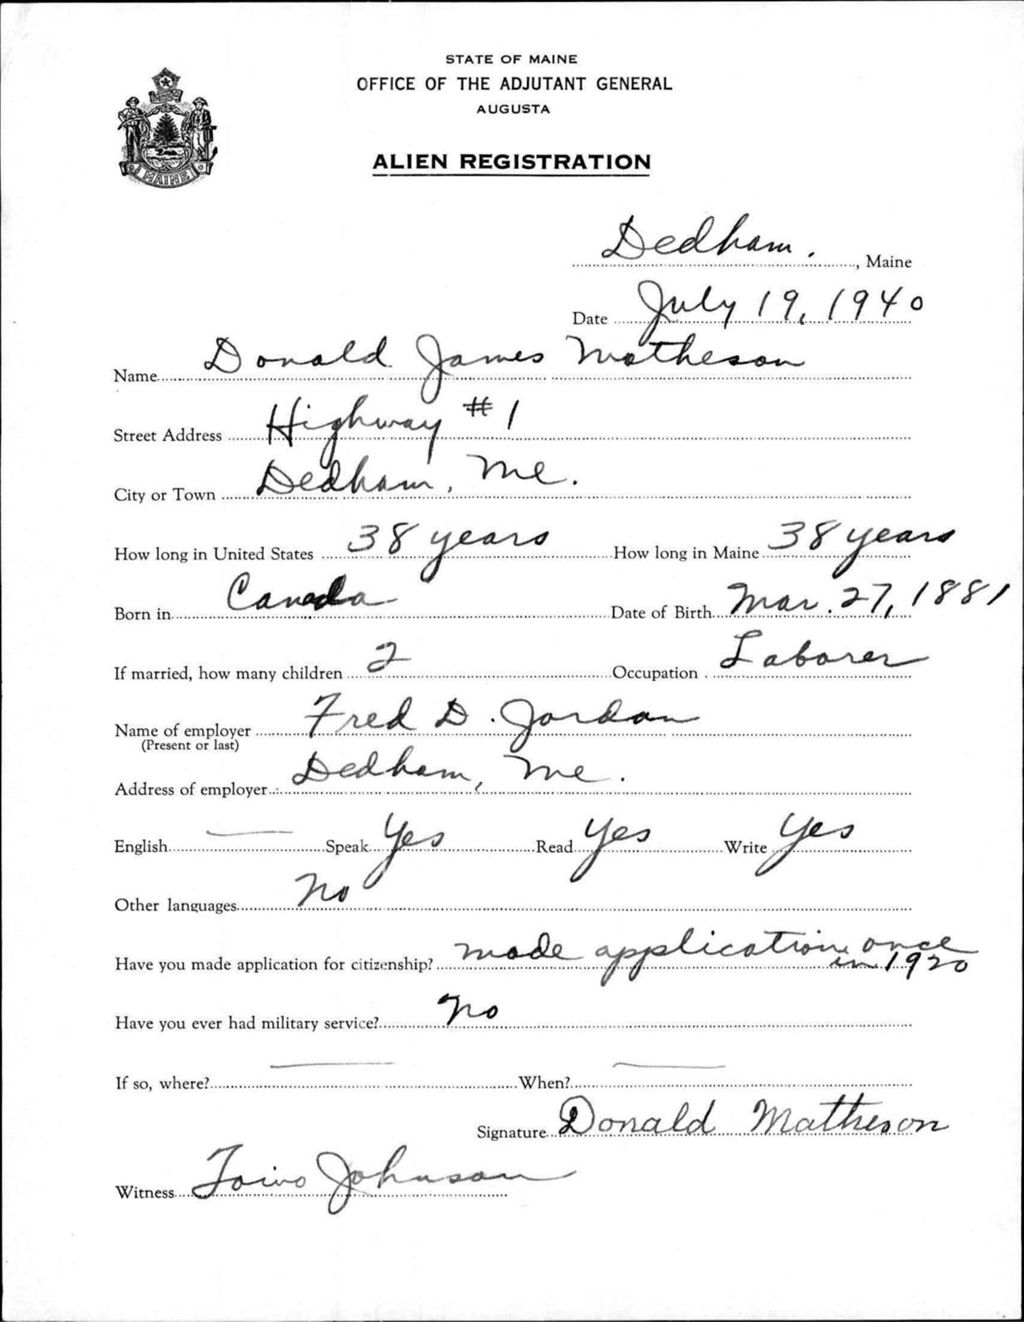 STATE OF MAINE
OFFICE OF THE ADJUTANT GENERAL
AUGUSTA
ALIEN REGISTRATION
MAINE
Dedham., Maine
Date July 19, 1940
Name Donald James Matheson
Street Address Highway #1
City or Town Dedham, Me.
How long in United States 38 years How long in Maine 38 years
Born in Canada Date of Birth Mar. 27, 1881
If married, how many children 2 Occupation Laborer
Name of employer Fred D. Jordan
(Present or last)
Address of employer Dedham, Me.
English — Speak Yes Read Yes Write Yes
Other languages No
Have you made application for citizenship? made application once
in 1920
Have you ever had military service? No
If so, where? — When? —
Signature Donald Matheson
Witness Toivo Johnson